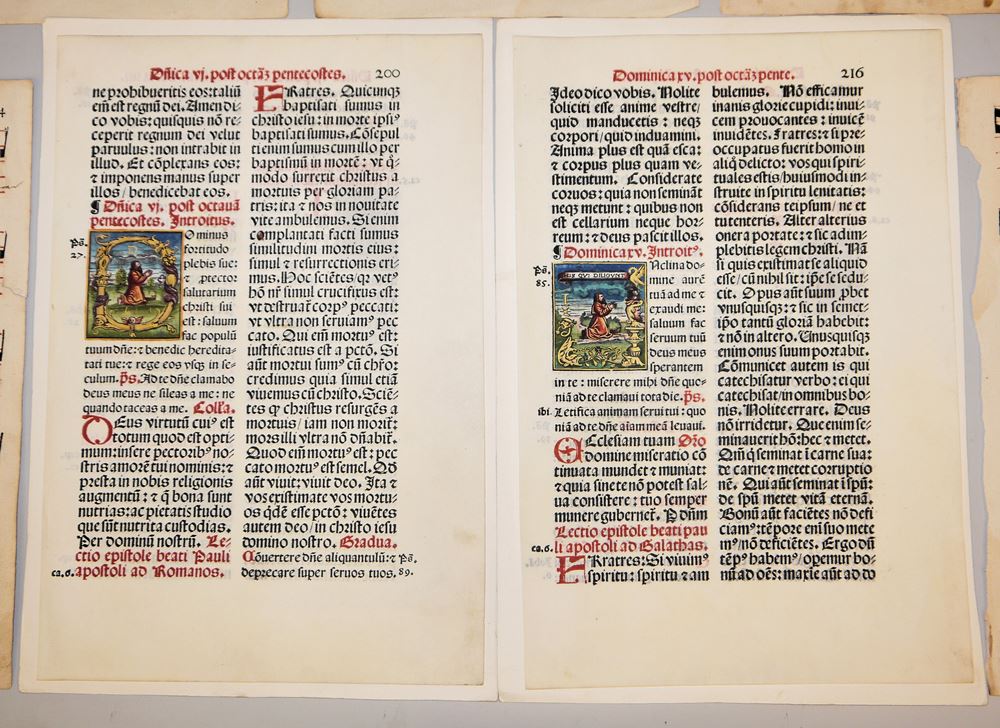 Dñica vj. post octaȝ pentecostes. 200
ne prohibueritis eos: taliũ
em̃ est regnũ dei. Amen di-
co vobis: quisquis nõ re-
ceperit regnum dei velut
paruulus: non intrabit in
illud. Et cõplexans eos:
⁊ imponens manus super
illos / benedicebat eos.
¶ Dñica vj. post octauã
pentecostes. Introitus.
Ps̃. 27.
Dominus
fortitudo
plebis sue:
⁊ ꝓtector
salutarium
christi sui
est: saluum
fac populũ
tuum dñe: ⁊ benedic heredita-
tati tue: ⁊ rege eos vsqȝ in se-
culum. p̃s. Ad te dñe clamabo
deus meus ne sileas a me: ne
quando taceas a me. Coll'a.
DEus virtutũ cuiꝰ est
totum quod est opti-
mum: insere pectoribꝰ no-
stris amorẽ tui nominis: ⁊
presta in nobis religionis
augmentũ: ⁊ q̃ bona sunt
nutrias: ac pietatis studio
que sũt nutrita custodias.
Per dominũ nostrũ. Le-
ctio epistole beati Pauli
ca.6. apostoli ad Romanos.
FRatres. Quicunqȝ
baptisati sumus in
christo iesu: in morte ipsiꝰ
baptisati sumus. Cõsepul
ti enim sumus cum illo per
baptismũ in mortẽ: vt q̃-
modo surrexit christus a
mortuis per gloriam pa-
tris: ita ⁊ nos in nouitate
vite ambulemus. Si enim
complantati facti sumus
similitudini mortis eius:
simul ⁊ resurrectionis eri-
mus. Hoc sciẽtes qꝛ vetꝰ
hõ nr̃ simul crucifixus est:
vt destruat̃ corpꝰ peccati:
vt vltra non seruiamꝰ pec
cato. Qui em̃ mortuꝰ est:
iustificatus est a pctõ. Si
aũt mortui sumꝰ cũ christo:
credimus quia simul etiã
viuemus cũ christo. Sciẽ-
tes ꝙ christus resurgẽs a
mortuis / iam non morit̃:
mors illi vltra nõ dñabit̃.
Quod em̃ mortuꝰ est: pec
cato mortuꝰ est semel. Qd̃
aũt viuit: viuit deo. Ita ⁊
vos existimate vos mortu-
os qdẽ esse pctõ: viuẽtes
autem deo / in christo iesu
domino nostro. Gradua.
Cõuertere dñe aliquantulũ: ⁊ Ps̃.
deprecare super seruos tuos. 89.
Dominica xv. post octaȝ pente. 216
Ideo dico vobis. Nolite
soliciti esse anime vestre /
quid manducetis: neqȝ
corpori / quid induamini.
Anima plus est quã esca:
⁊ corpus plus quam ve-
stimentum. Considerate
coruos: quia non seminãt
neqȝ metunt: quibus non
est cellarium neque hor-
reum: ⁊ deus pascit illos.
¶ Dominica xv. Introitꝰ.
Ps̃. 85.
QUI DILIGUNT
INclina do-
mine aurẽ
tuã ad me ⁊
exaudi me:
saluum fac
seruum tuũ
deus meus
sperantem
in te: miserere mihi dñe quo-
niã ad te clamaui tota die. p̃s.
ibi. Letifica animam serui tui: quo
niã ad te dñe aĩam meã leuaui.
Ecclesiam tuam Oro
domine miseratio cõ
tinuata mundet ⁊ muniat:
⁊ quia sine te nõ potest sal-
ua consistere: tuo semper
munere gubernet̃. P dñm̃
Lectio epistole beati pau
ca.6. li apostoli ad Galathas.
FRatres: Si viuimꝰ
spiritu: spiritu ⁊ am
bulemus. Nõ efficamur
inanis glorie cupidi: inui-
cem prouocantes: inuicẽ
inuidẽtes. Fratres: ⁊ si pre-
occupatus fuerit homo in
aliq̃ delicto: vos qui spiri-
tuales estis / huiusmodi in-
struite in spiritu lenitatis:
cõsiderans teipsum / ne et
tu tenteris. Alter alterius
onera portate: ⁊ sic adim-
plebitis legem christi. Nã
si quis existimat se aliquid
esse / cũ nihil sit: ip̃e se sedu-
cit. Opus aũt suum ꝓbet
vnusquisqȝ: ⁊ sic in semet-
ip̃o tantũ gloriã habebit:
⁊ nõ in altero. Unusquisqȝ
enim onus suum portabit.
Cõmunicet autem is qui
catechisatur verbo: ei qui
catechisat / in omnibus bo-
nis. Nolite errare. Deus
nõ irridetur. Que enim se-
minauerit hõ: hec ⁊ metet.
Qm̃ q̃ seminat ĩ carne sua:
de carne ⁊ metet corruptio
nẽ. Qui aũt seminat ĩ spũ:
de spũ metet vitã eternã.
Bonũ aũt faciẽtes nõ defi
ciamꝰ: tẽpore em̃ suo mete
mꝰ / nõ deficiẽtes. Ergo dũ
tẽpꝰ habemꝰ / operemur bo-
nũ ad oẽs: maxie aũt ad do